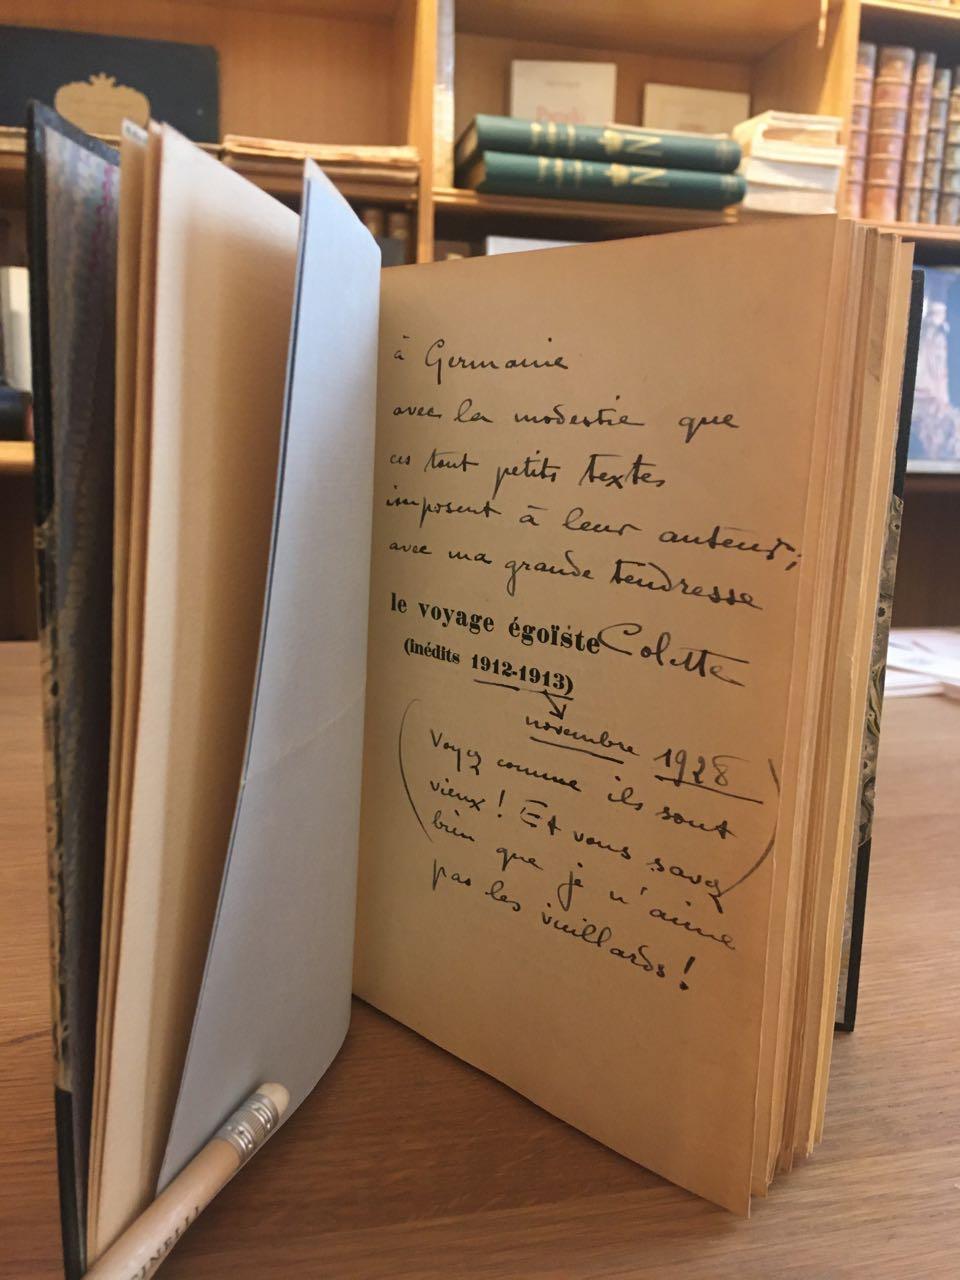 à Germaine
avec la modestie que
ces tout petits textes
imposent à leur auteur ;
avec ma grande tendresse
le voyage égoïste Colette
(inédits 1912-1913)
novembre 1928
(Voyez comme ils sont
vieux ! Et vous savez
bien que je n'aime
pas les vieillards !
N
N